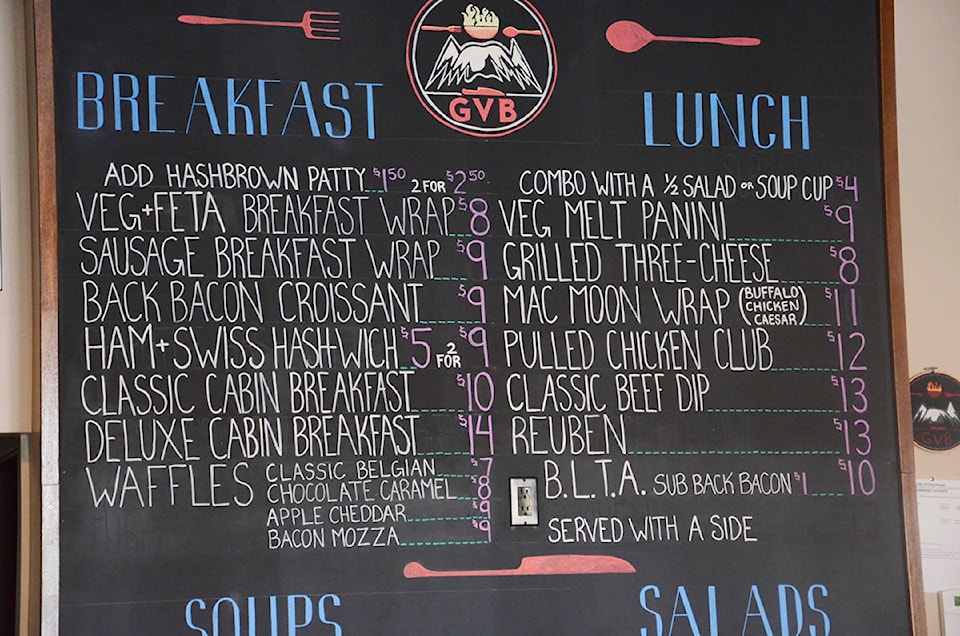 GVB
BREAKFAST
ADD HASHBROWN PATTY $1.50 2 FOR $2.50
VEG+FETA BREAKFAST WRAP $8
SAUSAGE BREAKFAST WRAP $9
BACK BACON CROISSANT $9
HAM+SWISS HASH-WICH $5 2 FOR $9
CLASSIC CABIN BREAKFAST $10
DELUXE CABIN BREAKFAST $14
WAFFLES CLASSIC BELGIAN $7
CHOCOLATE CARAMEL $8
APPLE CHEDDAR $8
BACON MOZZA $9
LUNCH
COMBO WITH A 1/2 SALAD OR SOUP CUP $4
VEG MELT PANINI $9
GRILLED THREE-CHEESE $8
MAC MOON WRAP (BUFFALO CHICKEN CAESAR) $11
PULLED CHICKEN CLUB $12
CLASSIC BEEF DIP $13
REUBEN $13
B.L.T.A. SUB BACK BACON $1 $10
SERVED WITH A SIDE
SOUPS
SALADS
GVB